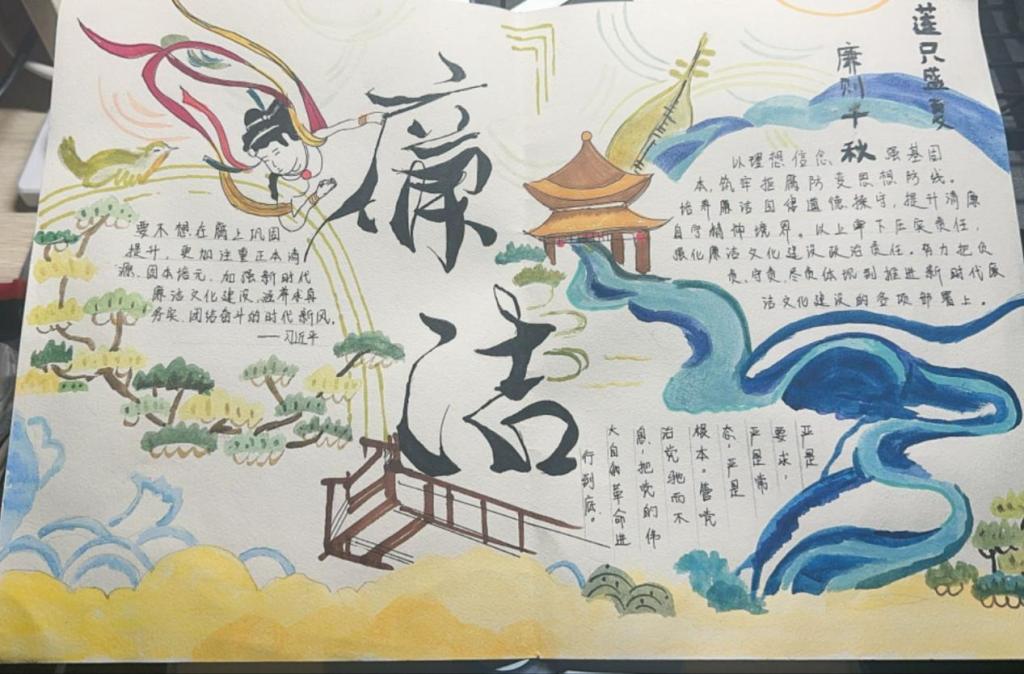 廉
洁
莲只盛夏
廉则千秋
要不想在腐上巩固
提升,更加注重正本清
源、固本培元,加强新时代
廉洁文化建设,涵养求真
务实、团结奋斗的时代新风。
——习近平
以理想信念 强基固
本,筑牢拒腐防变思想防线。
培养廉洁自律道德操守,提升清廉
自守精神境界。以上率下压实责任,
强化廉洁文化建设政治责任。努力把负
责、守责、尽责体现到推进新时代廉
洁文化建设的各项部署上。
严是
要求,
严是常
态,严是
根本。管党
治党驰而不
息,把党的伟
大自我革命进
行到底。